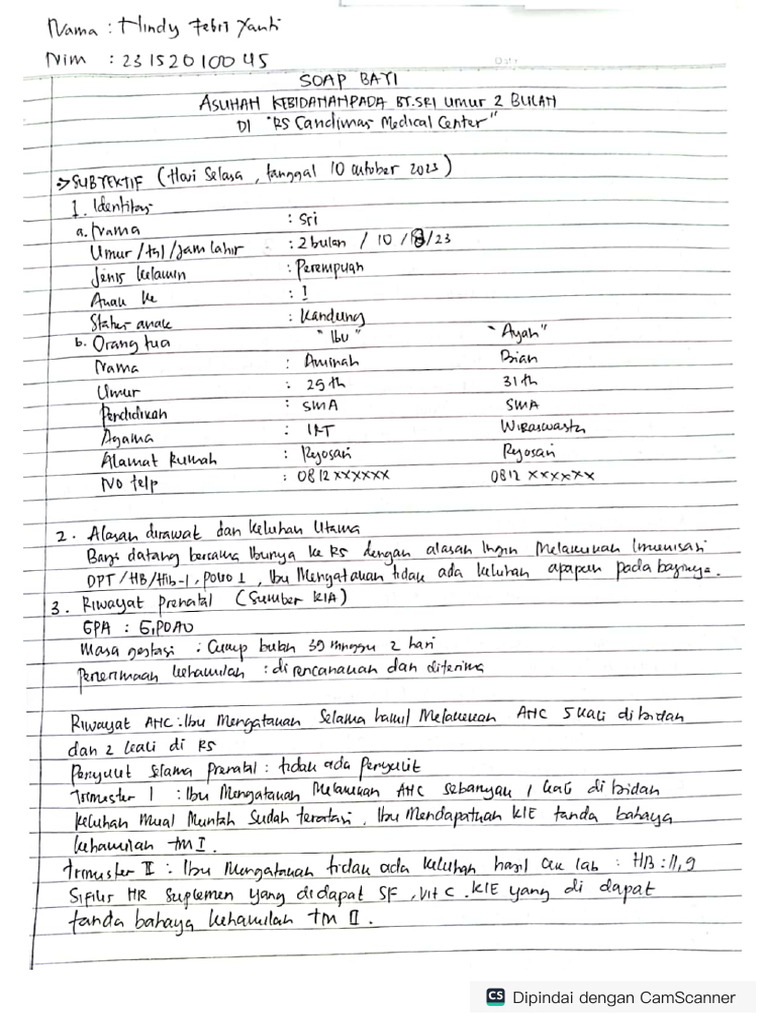 Nama : Hindy Febri Yanti
Nim : 23152010045
SOAP BAYI
ASUHAN KEBIDANAN PADA BY.SRI umur 2 BULAN
DI "RS Candimas Medical Center"
=> SUBYEKTIF (Hari Selasa, tanggal 10 oktober 2023)
1. Identitas
a. Nama : Sri
Umur / tgl / jam lahir : 2 bulan / 10 / 8 / 23
Jenis kelamin : Perempuan
Anak ke : 1
Status anak : Kandung
b. Orang tua "Ibu" "Ayah"
Nama : Aminah Brian
Umur : 25 th 31 th
Pendidikan : SMA SMA
Agama : IRT Wiraswasta
Alamat Rumah : Rejosari Rejosari
No telp : 0812 xxxxxx 0812 xxxxxx
2. Alasan dirawat dan keluhan Utama
Bayi datang bersama Ibunya ke RS dengan alasan Ingin Melakukan Imunisasi
DPT/HB/Hib-1, Polio 1, Ibu Mengatakan tidak ada keluhan apapun pada bayinya.
3. Riwayat Prenatal (Sumber KIA)
GPA : G1P0A0
Masa gestasi : Cukup bulan 39 minggu 2 hari
Penerimaan kehamilan : direncanakan dan diterima
Riwayat ANC : Ibu Mengatakan Selama hamil Melakukan ANC 5 kali di bidan
dan 2 kali di RS
Penyulit Selama Prenatal : tidak ada Penyulit
Trimester I : Ibu Mengatakan Melakukan ANC sebanyak 1 kali di bidan
keluhan Mual Muntah Sudah teratasi, Ibu Mendapatkan KIE tanda bahaya
kehamilan tm I.
trimester II : Ibu Mengatakan tidak ada keluhan hasil cek lab : HB : 11,9
Sifilis NR Suplemen yang didapat SF, Vit C. KIE yang di dapat
tanda bahaya kehamilan tm II.
CS Dipindai dengan CamScanner